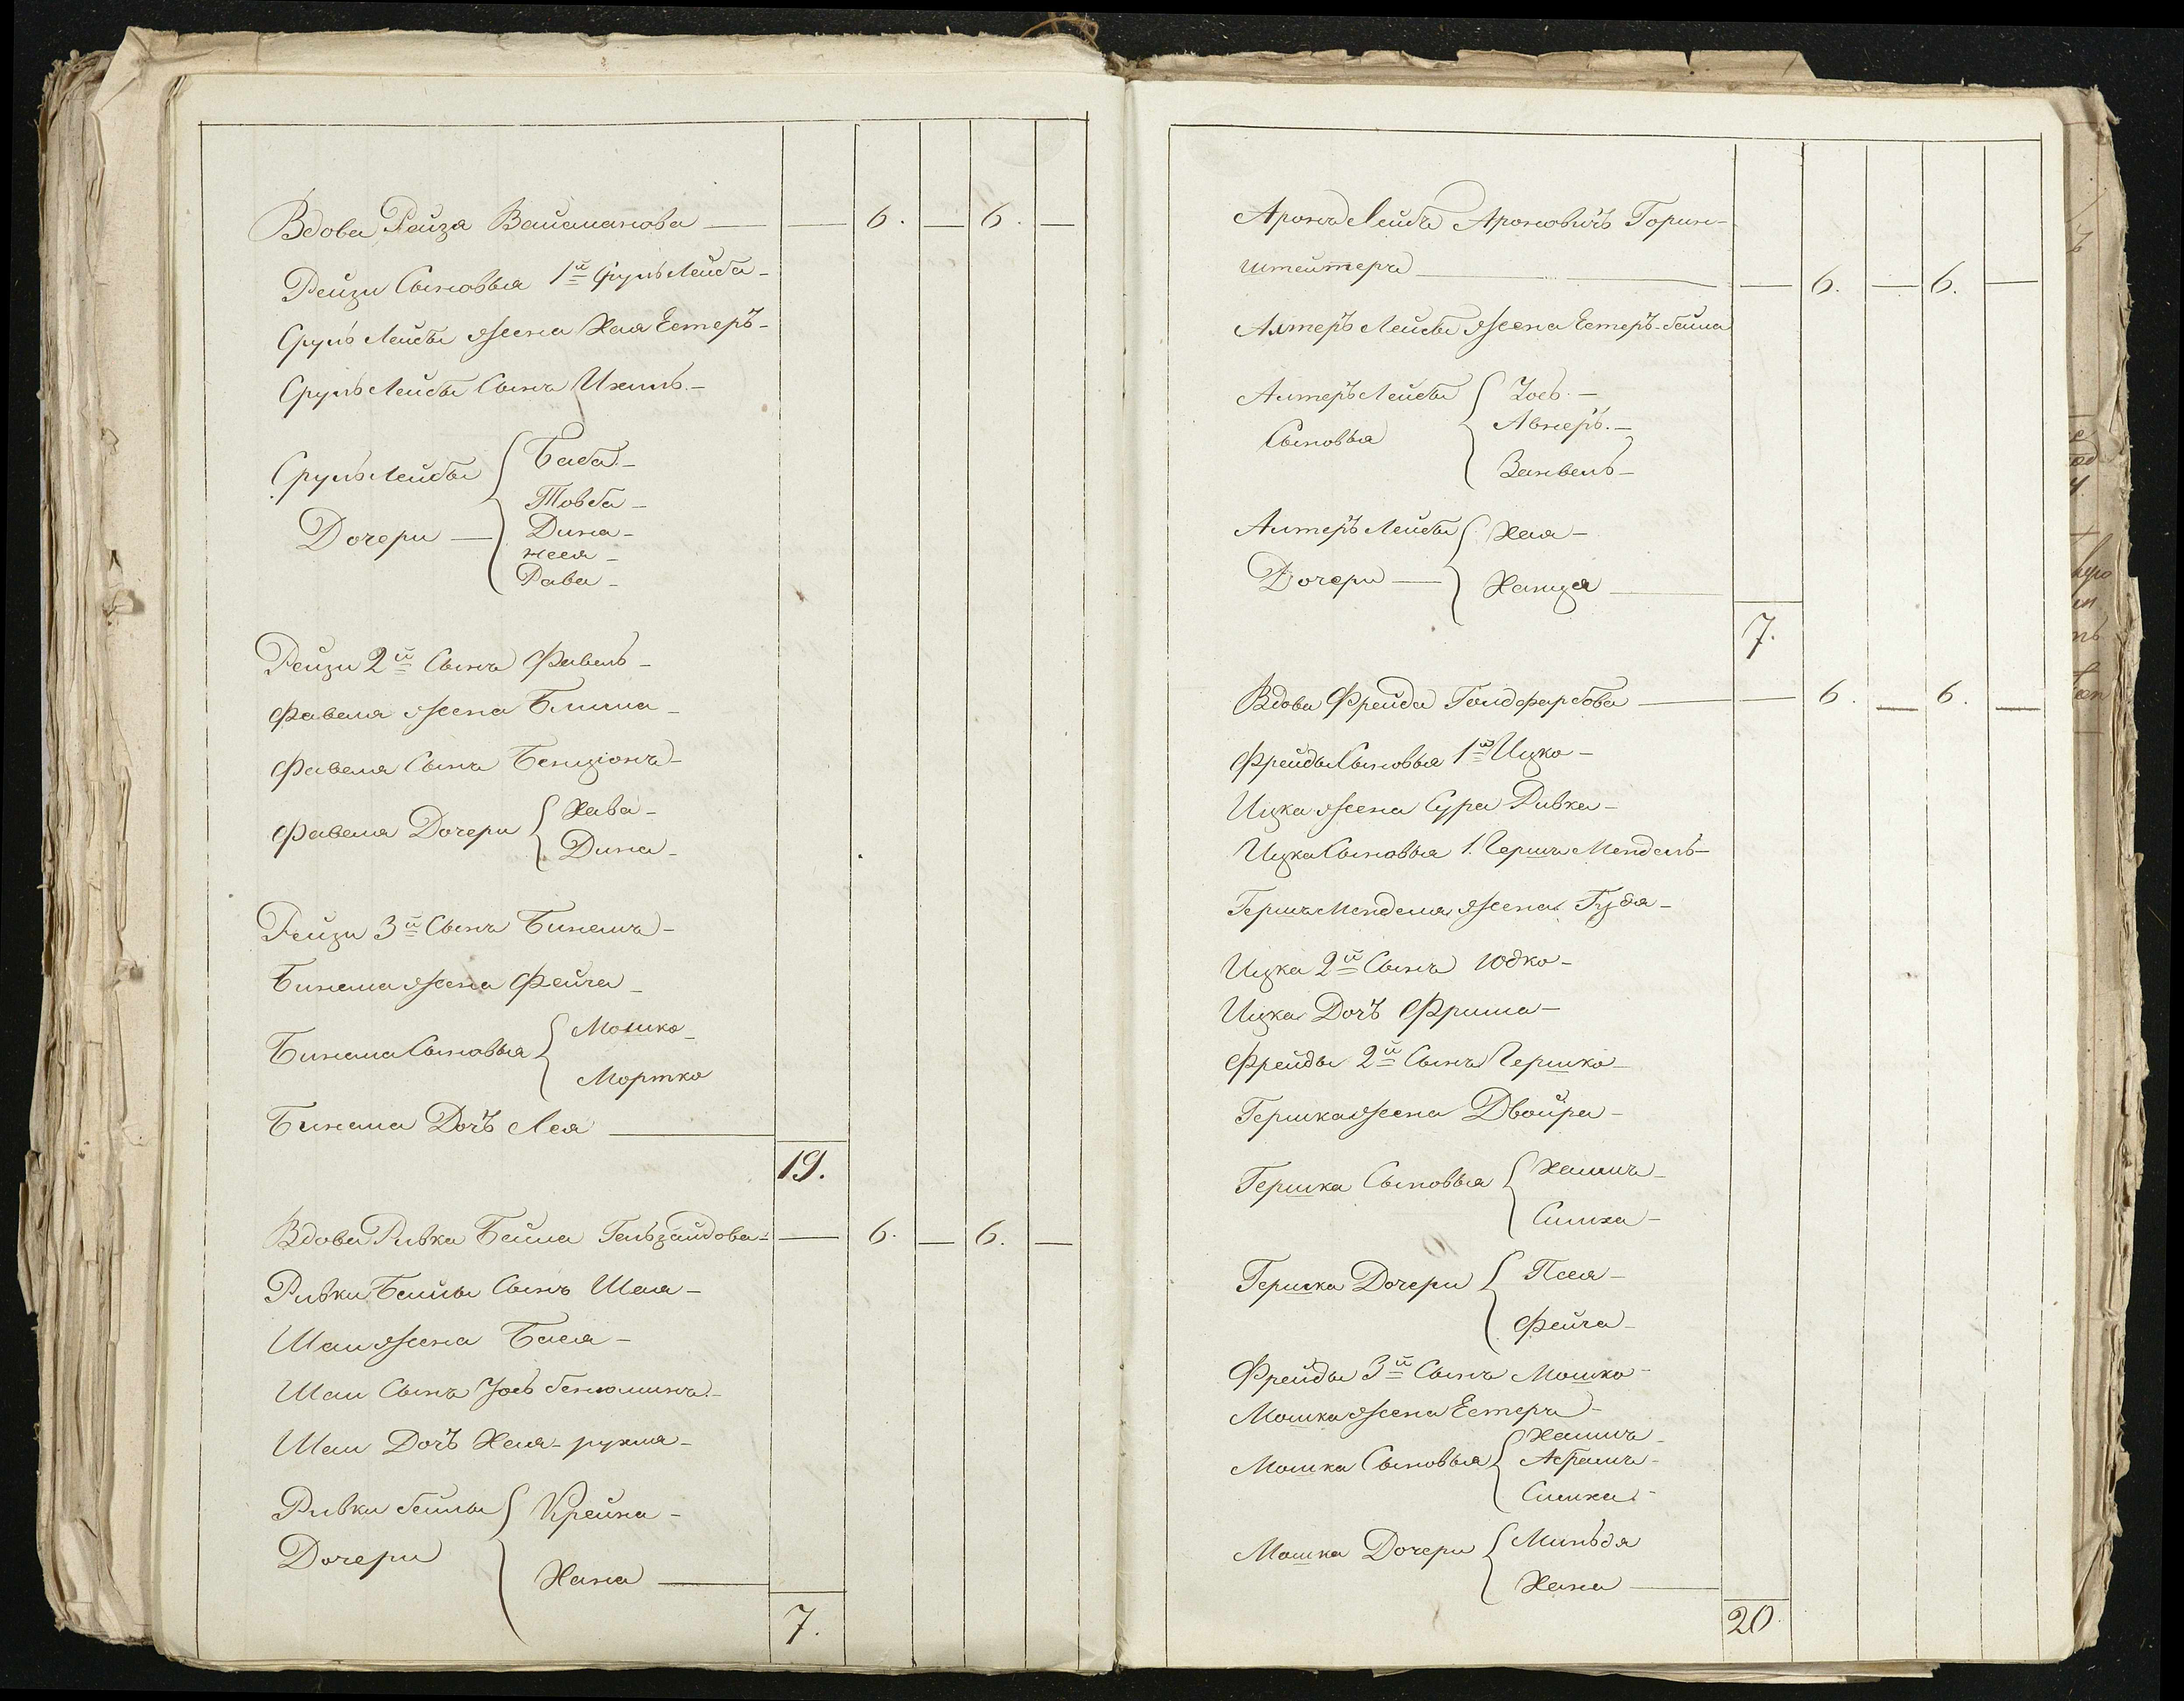 Вдова Рейза Вайсманова — — 6. — 6. —
Рейзи Сыновья 1й Сруль Лейба -
Сруль Лейбы жена Хая Естеръ -
Сруль Лейбы Сынъ Ихиль. -
Сруль Лейбы
Дочери —
Баба. -
Товба -
Дина -
Рава -
Рейзи 2й Сынъ Фавель -
Фавеля жена Блима -
Фавеля Сынъ Бенціонъ -
Фавеля Дочери
Хава -
Дина -
Рейзи 3й Сынъ Бинемъ -
Бинема жена Фейга -
Бинема Сыновья
Мошко -
Мортко
Бинема Дочь Лея —
19.
Вдова Ривка Бейла Гельзайдова - — 6. — 6. —
Ривки Бейлы Сынъ Шая -
Шаи жена Бася -
Шаи Сынъ Іось бенюминъ. -
Шаи Дочь Хая - рухля -
Ривки бейлы
Дочери
Крейна -
Хана —
7.
Аронъ Лейбъ Ароновичъ Горин-
штейтеръ — — 6. — 6. —
Алтеръ Лейбы жена Естеръ-бейла
Алтеръ Лейбы
Сыновья
Іось. -
Авнеръ. -
Занвель -
Алтеръ Лейбы
Дочери —
Хая -
Ханця —
7.
Вдова Фрейда Голдфарбова — — 6. — 6. —
Фрейды Сыновья 1й Ицко -
Ицка жена Сура Ривка -
Ицка Сыновья 1. Гершъ Мендель -
Гершъ Менделя жена Гудя -
Ицка 2й Сынъ Юдко -
Ицка Дочь Фрима -
Фрейды 2й Сынъ Гершко -
Гершка жена Двойра -
Гершка Сыновья
Хаимъ -
Симха -
Гершка Дочери
Песя -
Фейга -
Фрейды 3й Сынъ Мошко -
Мошка жена Естеръ -
Мошка Сыновья
Хаимъ -
Абрамъ -
Симха -
Мошка Дочери
Миндя
Хана —
20.